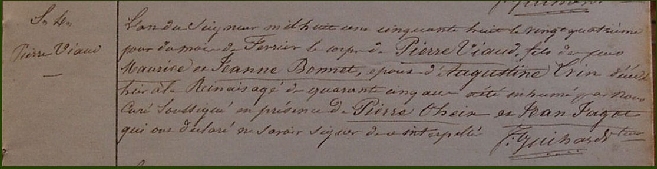 S. de
Pierre Viaud
L'an du Seigneur mil huit cent cinquante huit le vingt quatrième
jour du mois de Février le corps de Pierre Viaud, fils de feus
Maurice et Jeanne Bonnet, époux d'Augustine décédé
hier à la agé de quarante cinq ans a été inhumé par Nous
Curé Soussigné en présence de Pierre et Jean
qui ont déclaré ne savoir signer de ce interpellé
F. Guihard